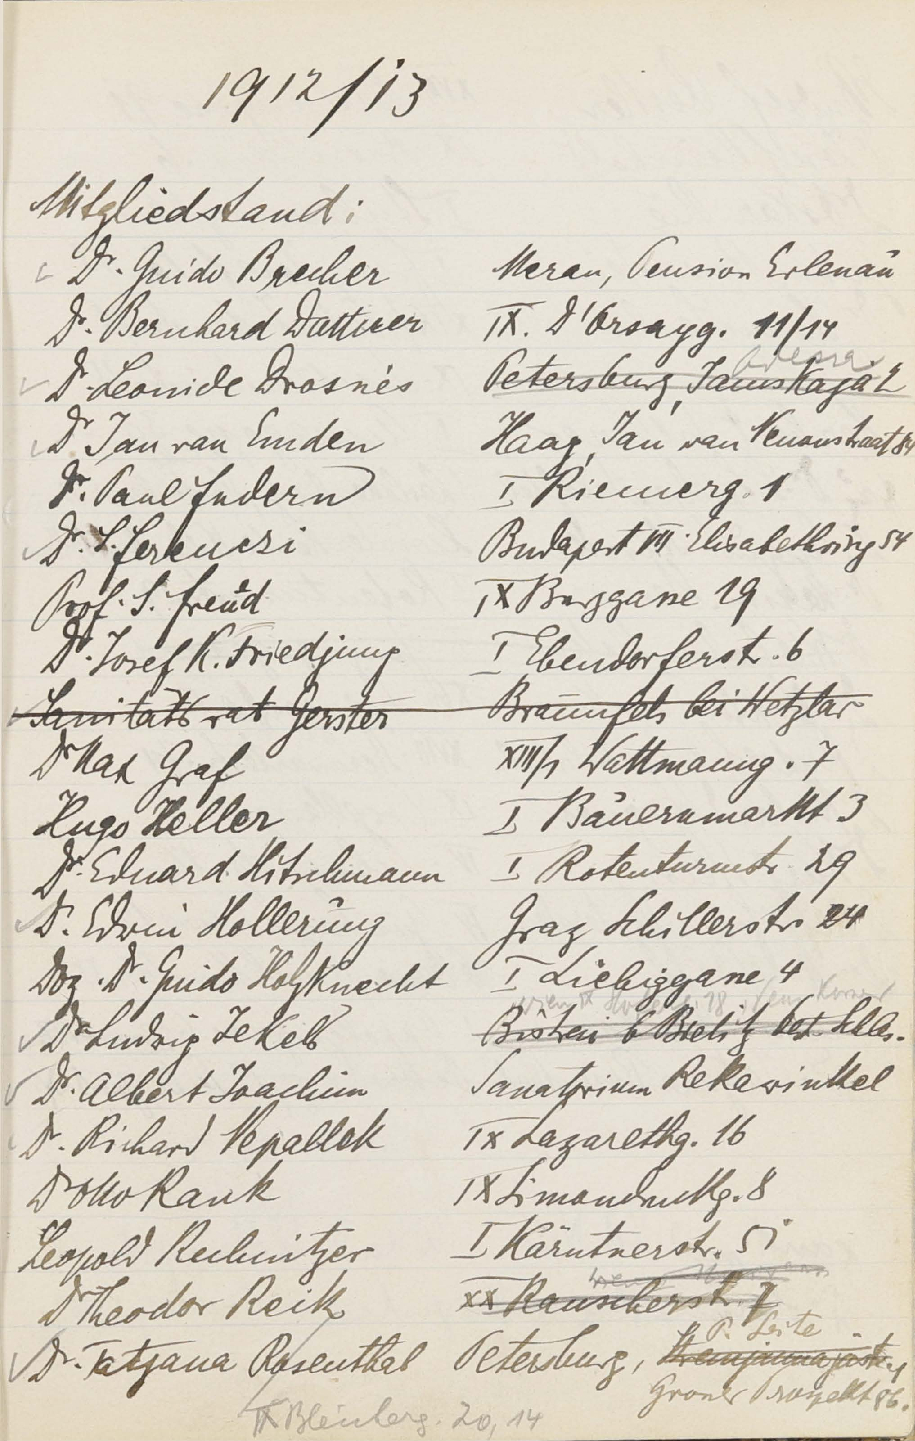 1912/13
Mitgliedstand:
Dr. Guido Brecher Meran, Pension Erlenau
Dr. Bernhard Dattner IX. D'Orsayg. 11/14
Odessa
Dr. Leonide Drosnés Petersburg, Jamskaja 2
Dr Jan van Emden Haag, Jan van 84
Dr. Paul Federn I Riemerg. 1
Dr. S. Ferenczi Budapest VII Elisabethring 54
Prof. S. Freud IX Berggasse 19
Dr. Josef K. Friedjung I Ebendorferstr. 6
Sanitätsrat Gerster Braunfels bei Wetzlar
Dr Max Graf XIII/1 Wattmanng. 7
Hugo Heller I Bauernmarkt 3
Dr. Eduard Hitschmann I Rotenturmstr. 29
Dr. Edwin Hollerung Graz Schillerstr. 24
Doz. Dr. Guido Holzknecht I Liebiggasse 4
Wien IX
Dr Ludwig Jekels Bistrai b Bielitz öst. Schles.
Dr. Albert Joachim Sanatorium Rekawinkel
Dr. Richard Nepallek IX Lazarethg. 16
Dr Otto Rank IX Simondenkg. 8
Leopold Rechnitzer I Kärntnerstr. 51
Dr Theodor Reik XX Rauscherstr. 7
P. Seite
Dr. Tatjana Rosenthal Petersburg,
Groner Prospekt 86.
IX 20, 14